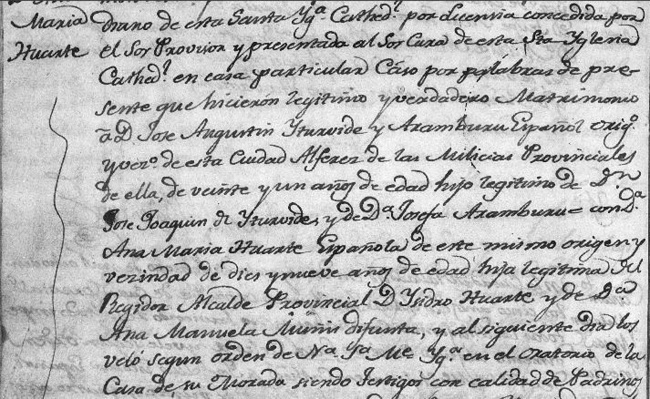 Maria
Huarte
diano de esta Santa Yga. Cathedl. por Licencia concedida por
el Sor Provisor y presentada al Sor Cura de esta Sta Yglesia
Cathedl. en casa particular Cáso por palabras de pre-
sente que hicierón legitimo y verdadero Matrimonio
â D. Jose Augustin Yturvide y Aramburu Español orig.
y vezo. de esta Ciudad Alferez de las Milicias Provinciales
de ella, de veinte y un años de edad hijo legitimo de Dn
Jose Joaquin de Yturvide, y de Da. Josefa Aramburu = con Da.
Ana Maria Huarte Española de este mismo origen y
vezindad de dies y nueve años de edad hija legitima del
Regidor Alcalde Provincial D. Ysidro Huarte y de Da.
Ana Manuela Muñis difunta, y al siguiente dia los
veló segun orden de Na. Sa. Me. Yga. en el oratorio de la
Casa de su Morada siendo testigos con calidad de Padrinos